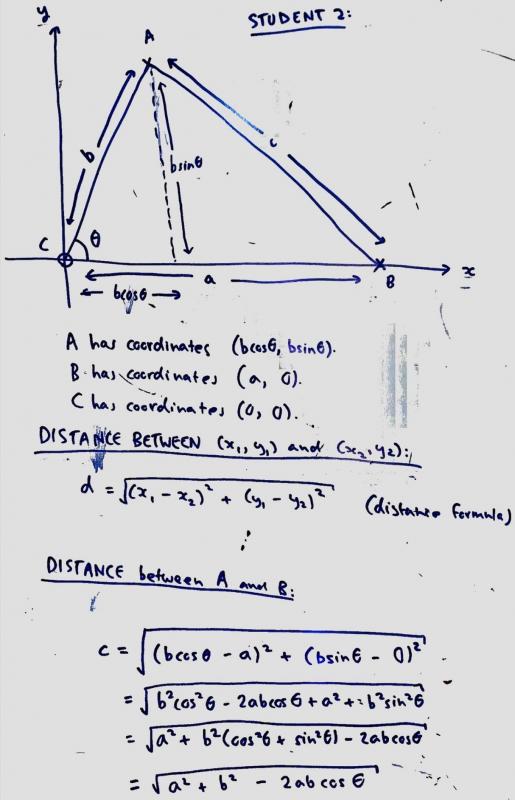 STUDENT 2:
y
A
b
bsinθ
c
C
θ
a
B
x
bcosθ
A has coordinates (bcosθ, bsinθ).
B has coordinates (a, 0).
C has coordinates (0, 0).
DISTANCE BETWEEN (x₁, y₁) and (x₂, y₂):
d = √(x₁ - x₂)² + (y₁ - y₂)² (distance formula)
DISTANCE between A and B:
c = √(bcosθ - a)² + (bsinθ - 0)²
= √b²cos²θ - 2abcosθ + a² + b²sin²θ
= √a² + b²(cos²θ + sin²θ) - 2abcosθ
= √a² + b² - 2abcosθ